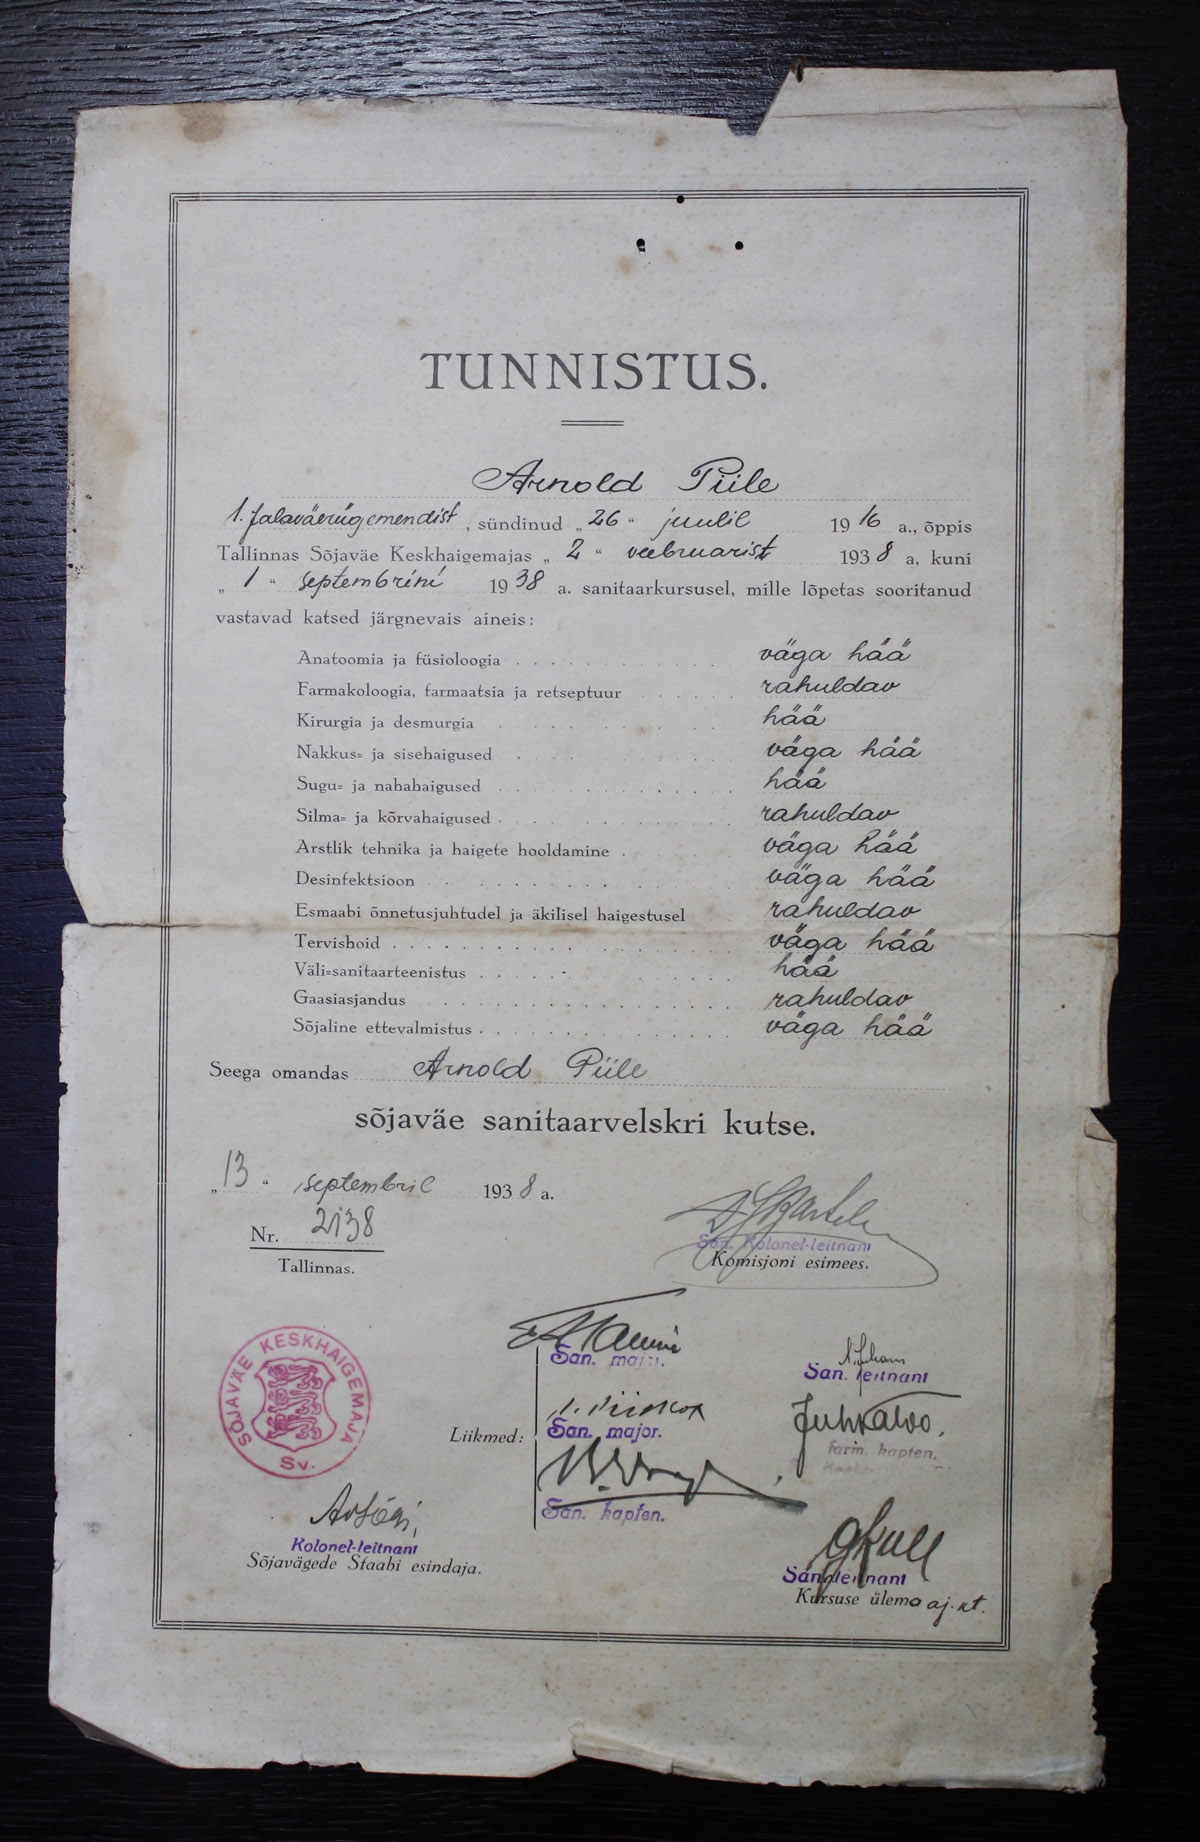 TUNNISTUS.
Arnold Piile
1. Jalaväerügemendist, sündinud „26“ juulil 1916 a., õppis
Tallinnas Sõjaväe Keskhaigemajas „2“ veebruarist 1938 a. kuni
„1“ septembrini 1938 a. sanitaarkursusel, mille lõpetas sooritanud
vastavad katsed järgnevais aineis:
Anatoomia ja füsioloogia . . . . . . . . . . väga hää
Farmakoloogia, farmaatsia ja retseptuur . . . . . . rahuldav
Kirurgia ja desmurgia . . . . . . . . . . hää
Nakkus- ja sisehaigused . . . . . . . . . . väga hää
Sugu- ja nahahaigused . . . . . . . . . . hää
Silma- ja kõrvahaigused . . . . . . . . . . rahuldav
Arstlik tehnika ja haigete hooldamine . . . . . väga hää
Desinfektsioon . . . . . . . . . . väga hää
Esmaabi õnnetusjuhtudel ja äkilisel haigestusel rahuldav
Tervishoid . . . . . . . . . . väga hää
Väli-sanitaarteenistus . . . . . . . . . . hää
Gaasiasjandus . . . . . . . . . . rahuldav
Sõjaline ettevalmistus . . . . . . . . . . väga hää
Seega omandas Arnold Piile
sõjaväe sanitaarvelskri kutse.
„13“ septembril 1938 a.
Nr. 2138
Tallinnas.
San. Kolonel-leitnant
Komisjoni esimees.
SÕJAVÄE KESKHAIGEMAJA
Sv.
Liikmed:
San. major.
San. major.
San. kapten.
San. leitnant
Juhkalvo.
farm. kapten.
Kolonel-leitnant
Sõjavägede Staabi esindaja.
San. leitnant
Kursuse ülema aj. kt.